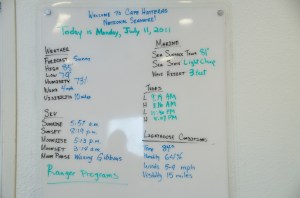 Welcome to Cape Hatteras
National Seashore!
Today is Monday, July 11, 2011
Weather
Forecast Sunny
High 85°
Low 79°
Humidity 73%
Wind
Visibility 10 miles
Sky
Sunrise 5:57 am
Sunset 8:19 pm
Moonrise 5:13 pm
Moonset 2:14 am
Moon Phase Waxing Gibbous
Ranger Programs
Marine
Sea Surface Temp
Sea State Light Chop
Wave Height 3 foot
Tides
L
H
L
H
Lighthouse Conditions
Temp
Humidity
Winds 5-8 mph
Visibility 15 miles